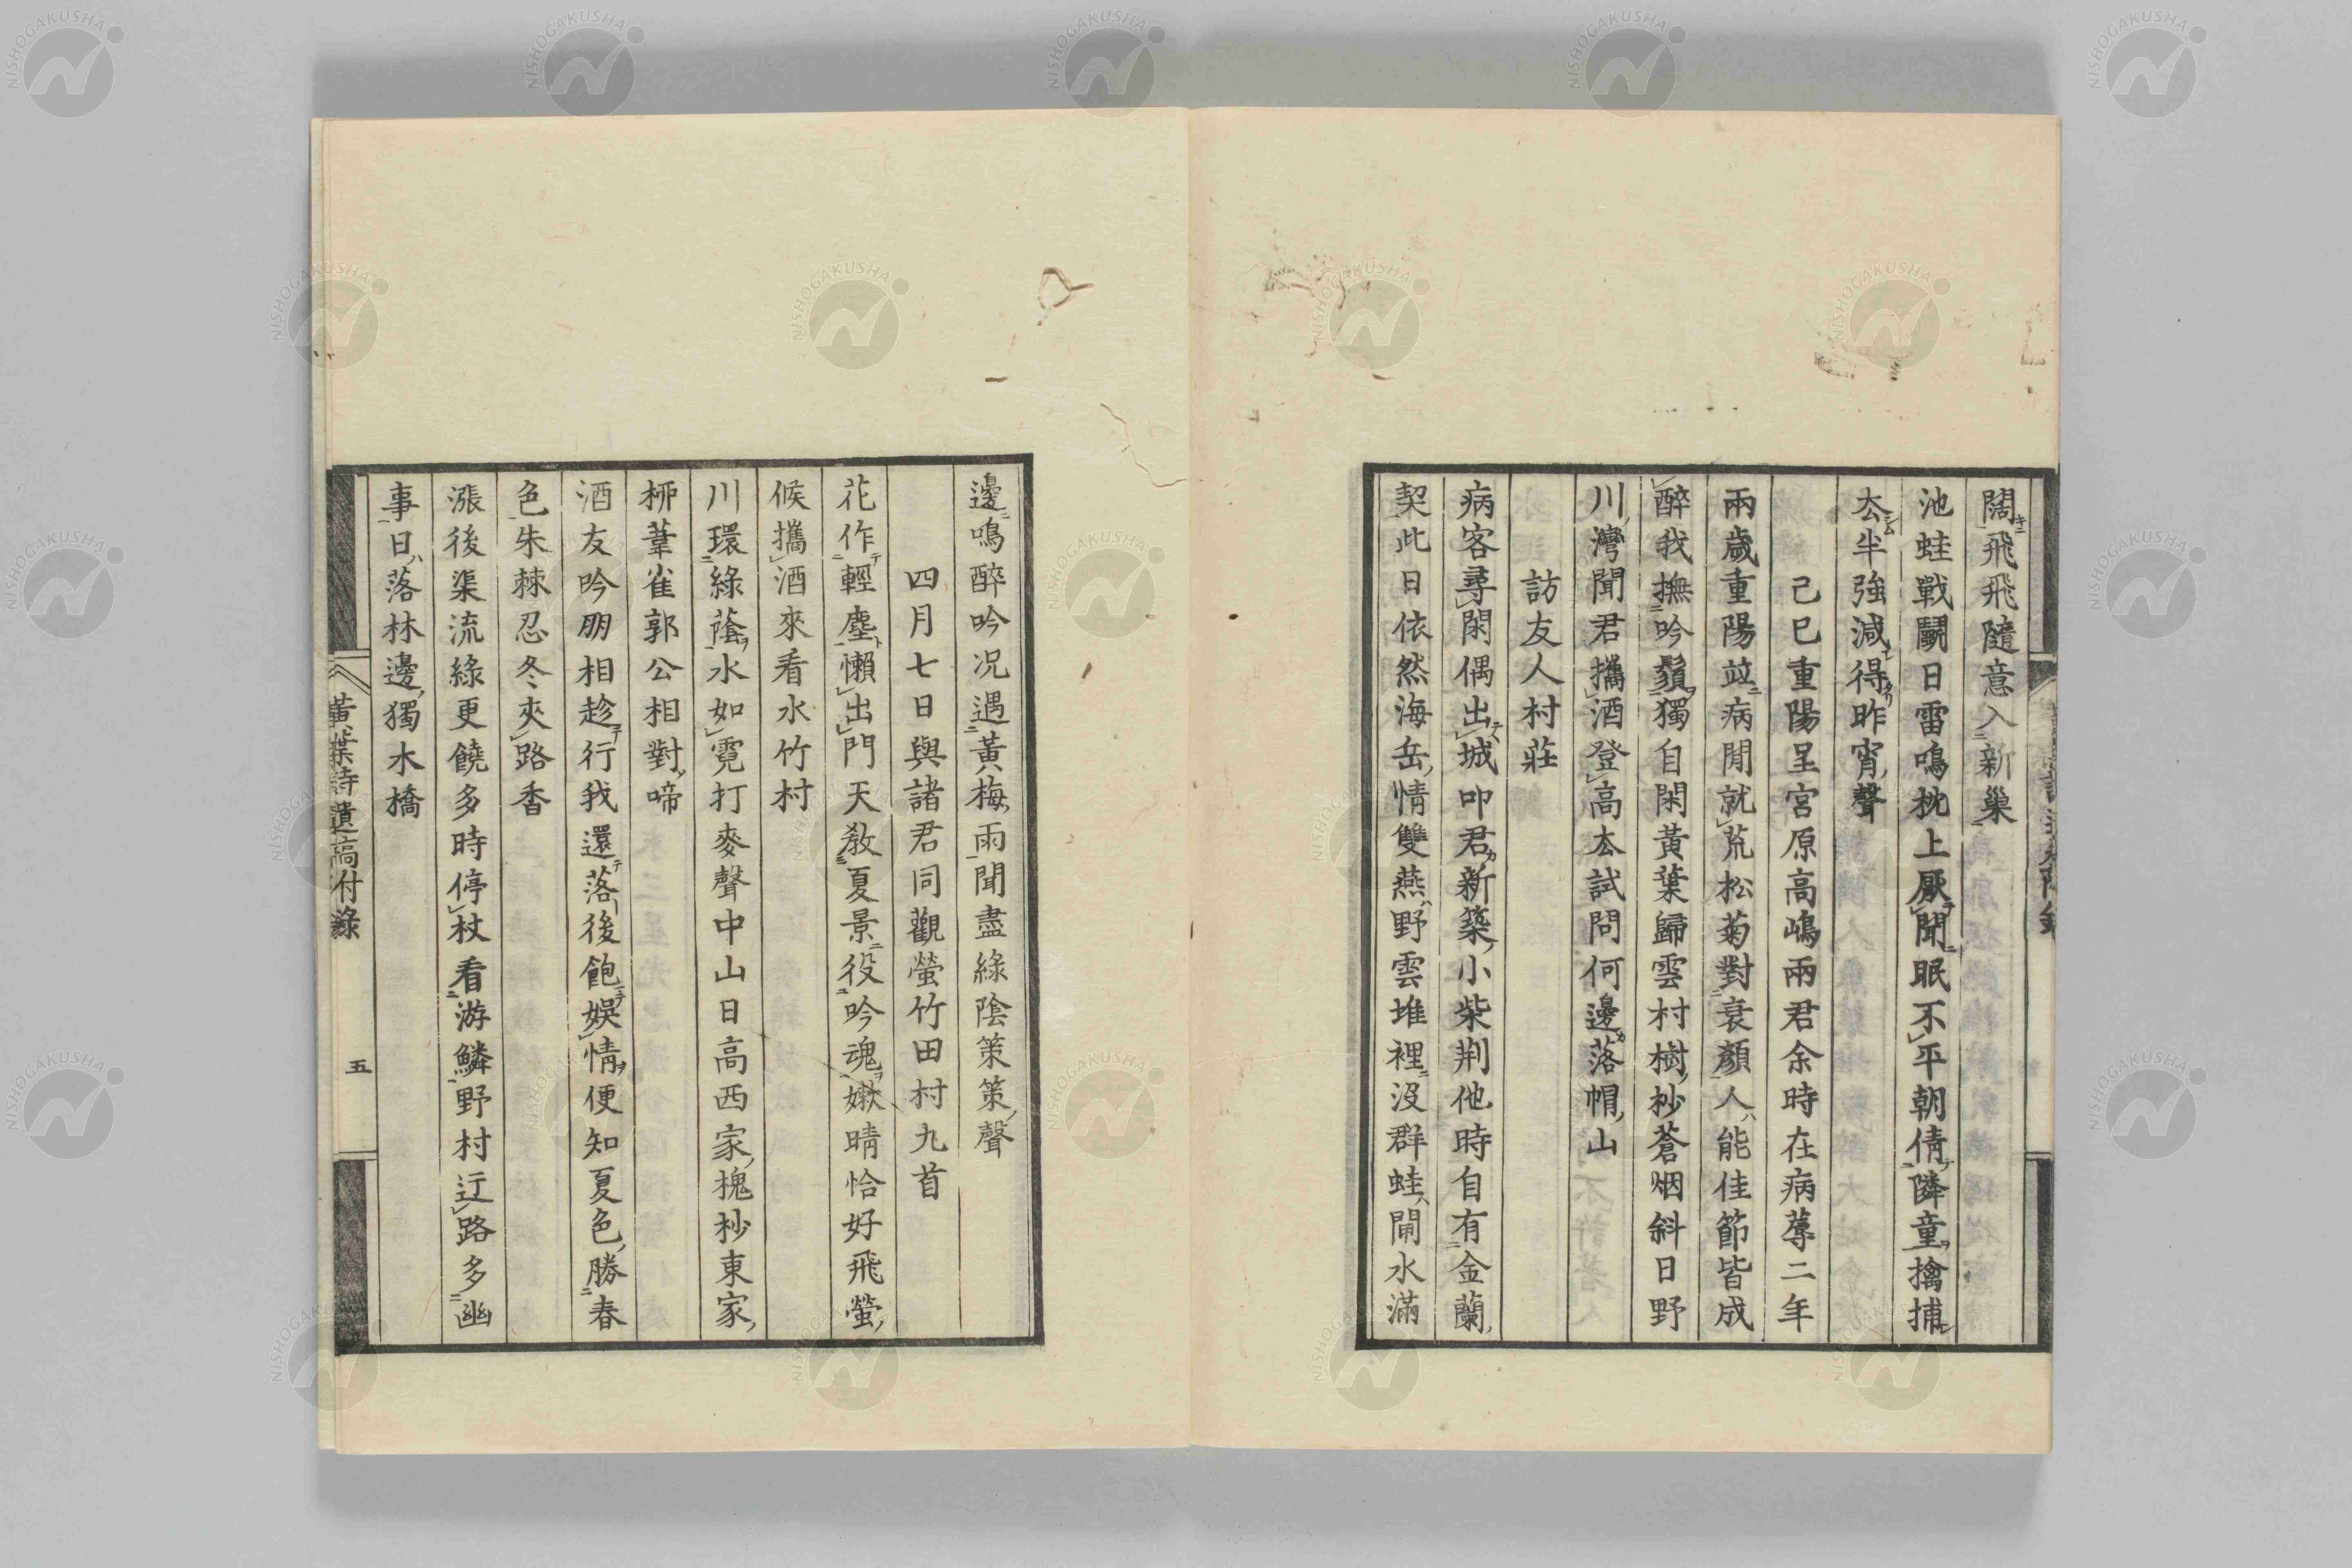 闊飛飛隨意入新巢
池蛙戰鬭日雷鳴枕上厭聞眠不平朝倩隣童擒捕
厺半強減得昨宵聲
己巳重陽呈宮原高嶋兩君余時在病蓐二年
兩歲重陽竝病閒就荒松菊對衰顏人能佳節皆成
醉我撫吟鬚獨自閑黃葉歸雲村樹杪蒼烟斜日野
川灣聞君攜酒登高厺試問何邊落帽山
訪友人村莊
病客尋閑偶出城叩君新築小柴荆他時自有金蘭
契此日依然海岳情雙燕野雲堆裡沒群蛙閙水滿
邊鳴醉吟况遇黃梅雨聞盡綠陰策策聲
四月七日與諸君同觀螢竹田村九首
花作輕塵懶出門天敎夏景役吟魂嫩晴恰好飛螢
候攜酒來看水竹村
川環綠蔭水如霓打麥聲中山日高西家槐杪東家
桺葦雀郭公相對啼
酒友吟朋相趁行我還落後飽娛情便知夏色勝春
色朱棘忍冬夾路香
漲後渠流綠更饒多時停杖看游鱗野村迂路多幽
事日落林邊獨木橋
黃葉詩遺高付錄
五
NISHOGAKUSHA